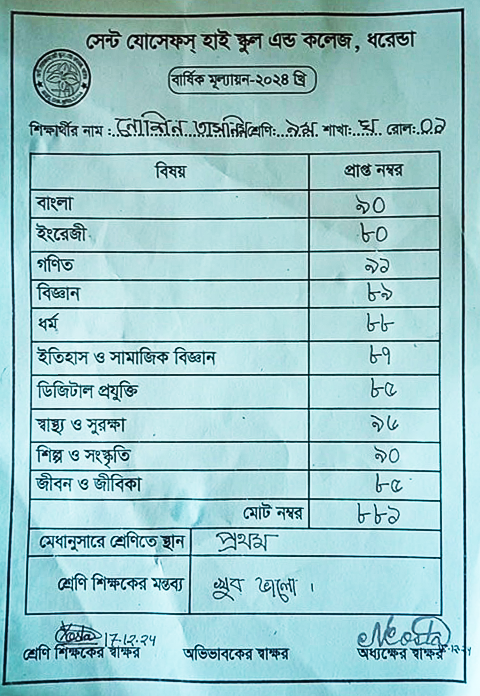 সেন্ট যোসেফস্ হাই স্কুল এন্ড কলেজ, ধরেন্ডা
বার্ষিক মূল্যায়ন-২০২৪ খ্রি
শিক্ষার্থীর নাম: তাসনিম শ্রেণি: ৯ম শাখা: রোল: ০১
বিষয় প্রাপ্ত নম্বর
বাংলা ৯০
ইংরেজী ৮০
গণিত ৯১
বিজ্ঞান ৮৯
ধর্ম ৮৮
ইতিহাস ও সামাজিক বিজ্ঞান ৮৭
ডিজিটাল প্রযুক্তি ৮৫
স্বাস্থ্য ও সুরক্ষা ৯৬
শিল্প ও সংস্কৃতি ৯০
জীবন ও জীবিকা ৮৫
মোট নম্বর ৮৮১
মেধানুসারে শ্রেণিতে স্থান প্রথম
শ্রেণি শিক্ষকের মন্তব্য খুব ভালো।
17-12-24
শ্রেণি শিক্ষকের স্বাক্ষর অভিভাবকের স্বাক্ষর অধ্যক্ষের স্বাক্ষর